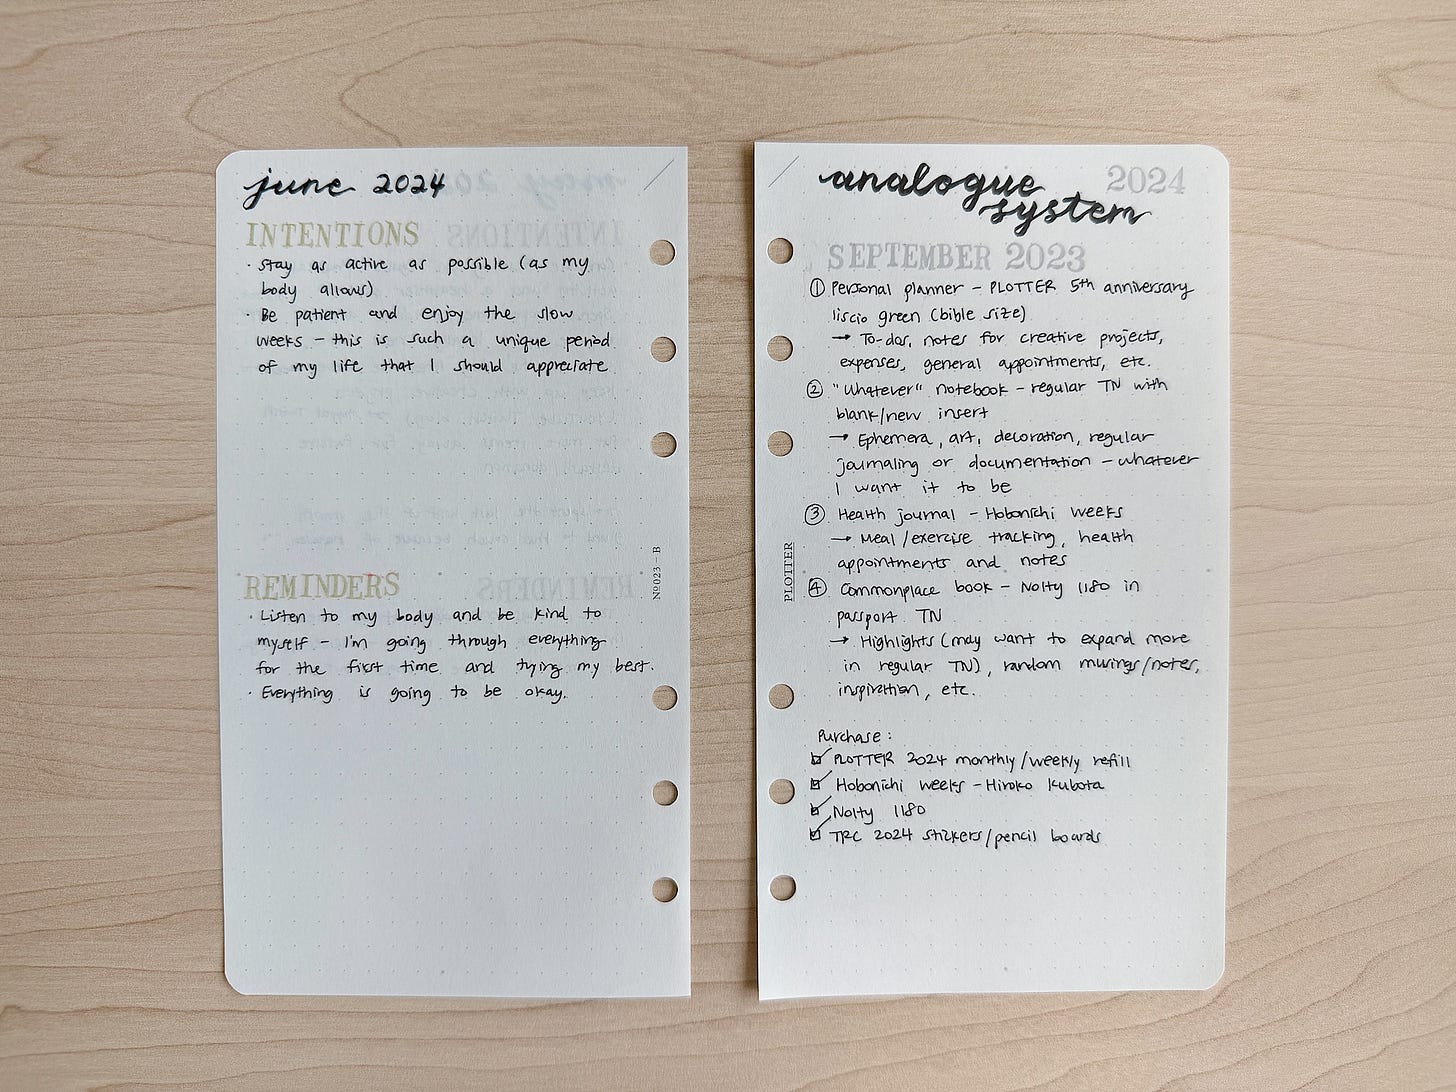 june 2024
INTENTIONS
· Stay as active as possible (as my
body allows)
· Be patient and enjoy the slow
weeks – this is such a unique period
of my life that I should appreciate
REMINDERS
· Listen to my body and be kind to
myself – I'm going through everything
for the first time and trying my best.
· Everything is going to be okay.
No.023 – B
analogue 2024
system
SEPTEMBER 2023
① Personal planner – PLOTTER 5th anniversary
liscio green (bible size)
→ To-dos, notes for creative projects,
expenses, general appointments, etc.
② "Whatever" notebook – regular TN with
blank/new insert
→ Ephemera, art, decoration, regular
journaling or documentation – whatever
I want it to be
③ Health journal – Hobonichi weeks
→ Meal/exercise tracking, health
appointments and notes
④ Commonplace book – Nolty 1180 in
passport TN
→ Highlights (may want to expand more
in regular TN), random musings/notes,
inspiration, etc.
Purchase:
☑ PLOTTER 2024 monthly/weekly refill
☑ Hobonichi weeks – Hiroko Kubota
☑ Nolty 1180
☑ TRC 2024 stickers/pencil boards
PLOTTER